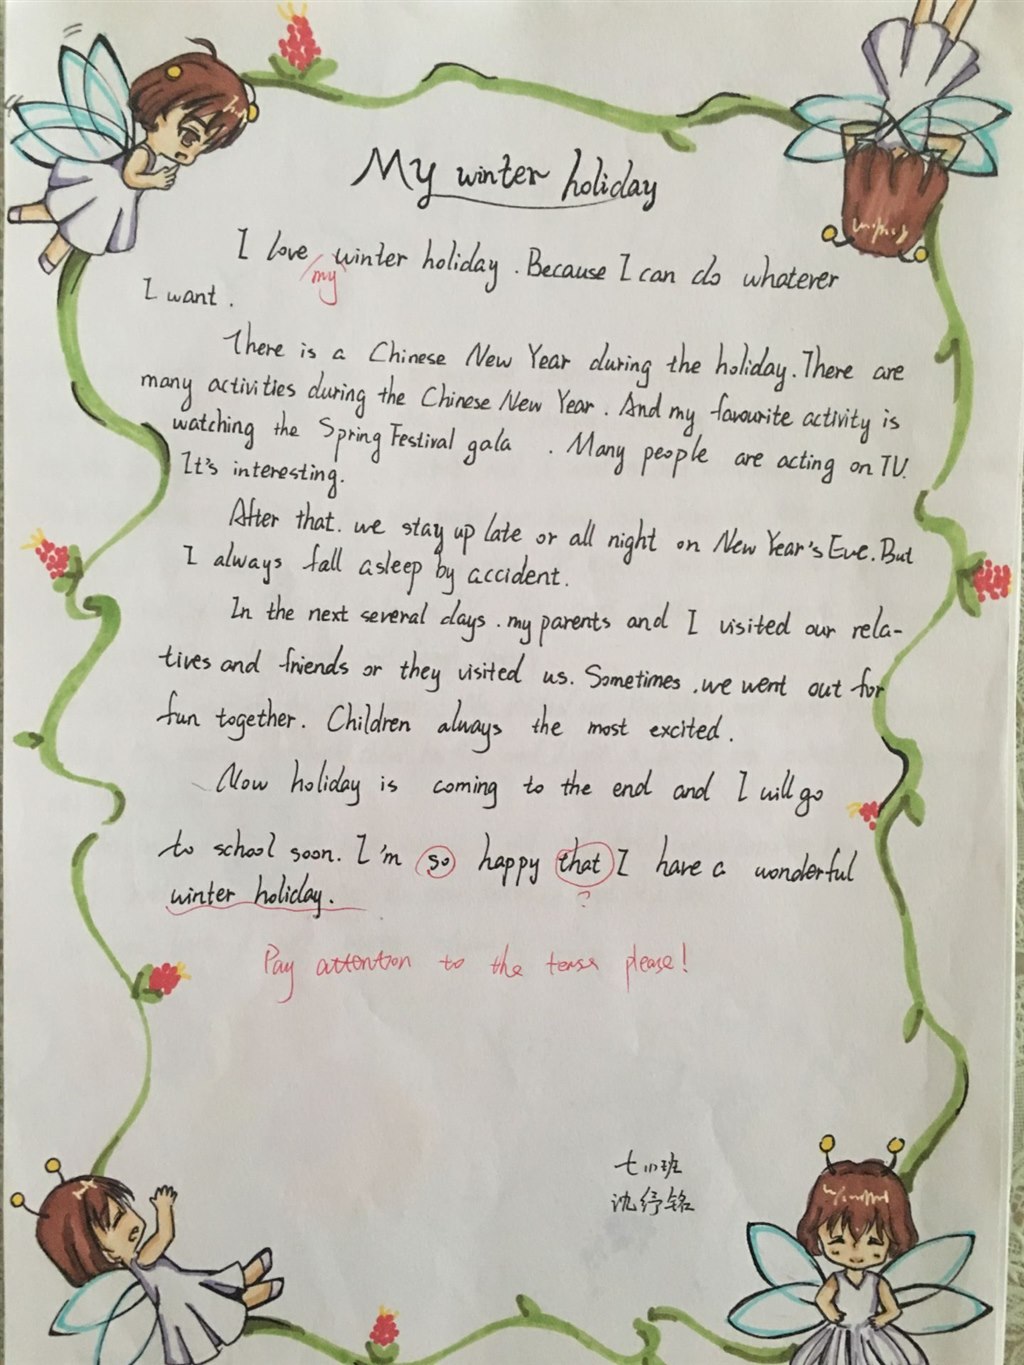 My winter holiday
I love winter holiday. Because I can do whatever
my
I want.
There is a Chinese New Year during the holiday. There are
many activities during the Chinese New Year. And my favourite activity is
watching the Spring Festival gala. Many people are acting on TV.
It's interesting.
After that. we stay up late or all night on New Year's Eve. But
I always fall asleep by accident.
In the next several days. my parents and I visited our rela-
tives and friends or they visited us. Sometimes, we went out for
fun together. Children always the most excited.
Now holiday is coming to the end and I will go
to school soon. I'm so happy that I have a wonderful
?
winter holiday.
Pay attention to the tense please!
七(1)班
沈纾铭